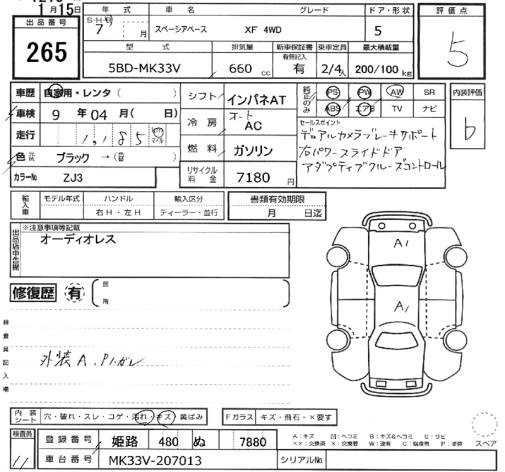 月15日
出品番号
265
年式 車名 グレード ドア・形状
S・H・R 7 月 スペーシアベース XF 4WD 5
型式 排気量 新車保証書 乗車定員 最大積載量
有無記入
5BD-MK33V 660 cc 有 2/4人 200/100 kg
評価点
5
内装評価
b
車歴 自家用・レンタ( )
車検 9年04月( 日)
走行
色 ブラック → ( )
カラーNo ZJ3
シフト インパネAT
冷房 オート AC
燃料 ガソリン
リサイクル料金 7180円
純正のみ PS PW AW SR
ABS エアB TV ナビ
セールスポイント
デュアルカメラブレーキサポート
右パワースライドドア
アダプティブクルーズコントロール
輸入車 モデル年式 ハンドル 輸入区分
右H・左H ディーラー・並行
書類有効期限
月 日迄
※注意事項等記載
オーディオレス
修復歴 有
検査員記入欄
外装A、
A1
A1
内装シート 穴・破れ・スレ・コゲ・汚れ・キズ・黄ばみ
Fガラス キズ・飛石・×要す
スペア
検査員
11
登録番号 姫路 480 ぬ 7880
車台番号 MK33V-207013
シリアルNo